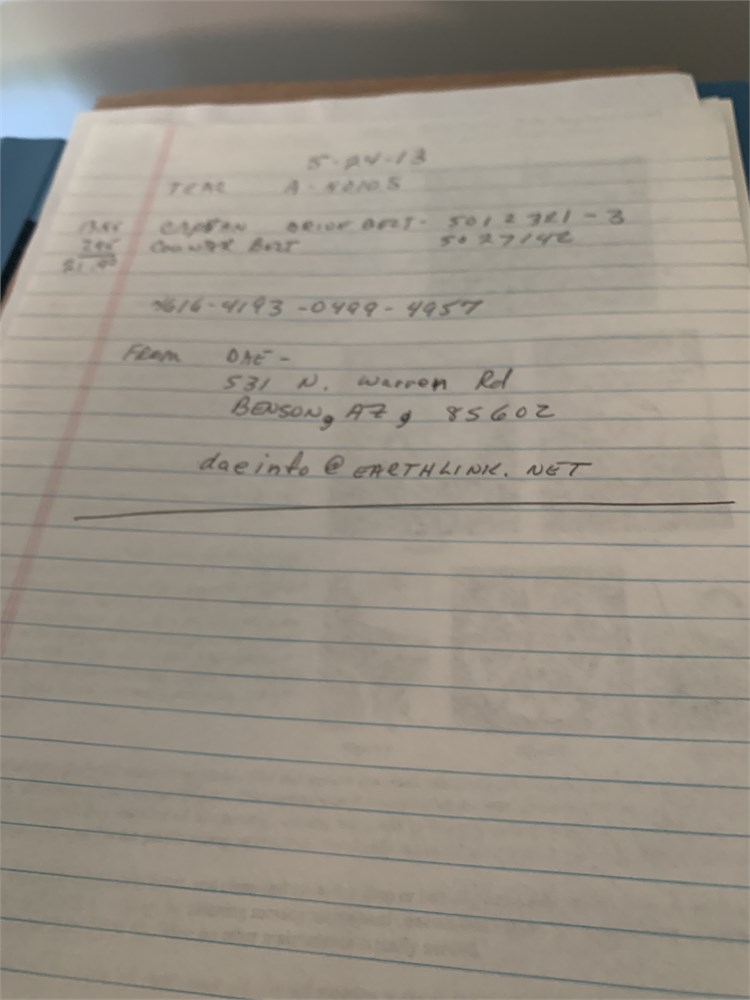 5-24-13
TEAC A-
CAPSTAN DRIVE BELT- 5012 321-3
COUNTER BELT 5027142
-4193-0499-4957
FROM DAE-
531 N. Warren Rd
BENSON, AZ, 85602
daeinfo@EARTHLINK.NET